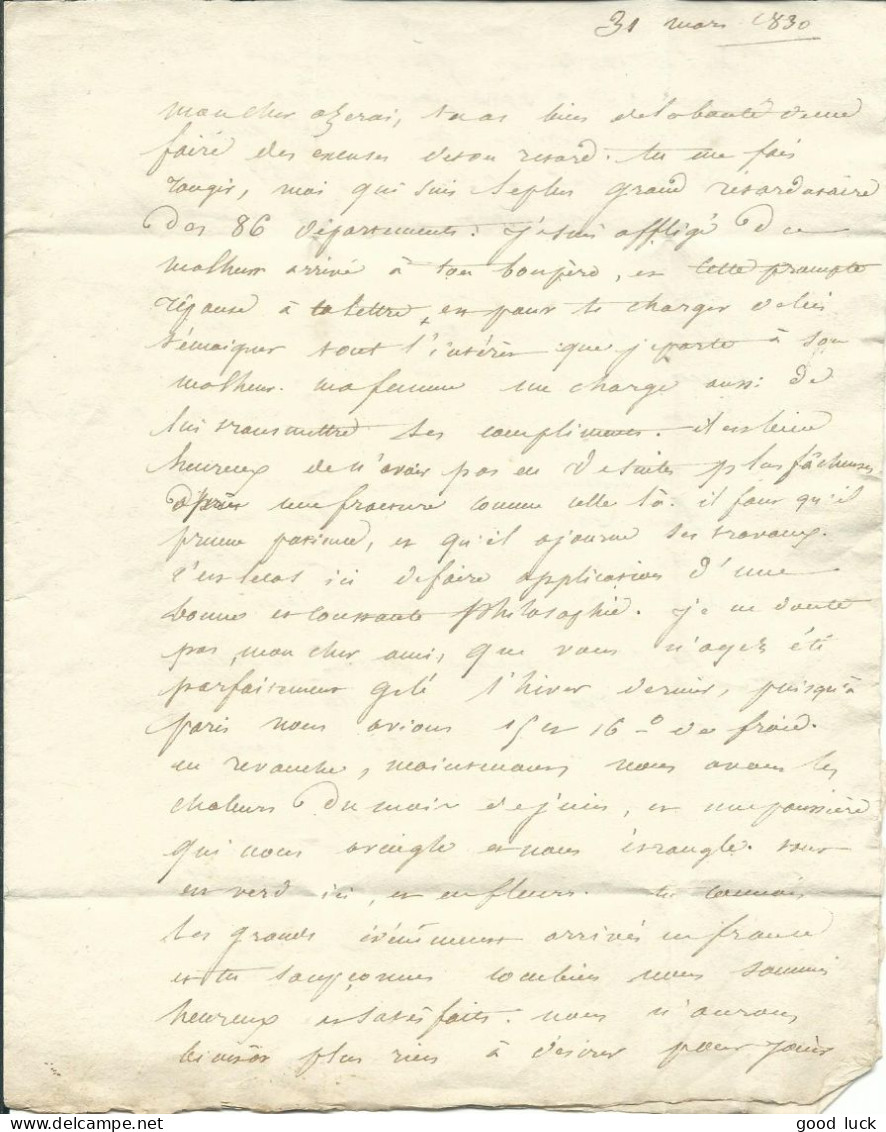 31 mars 1830
mon cher azerai, tu as bien de la bonté de me
faire des excuses de ton retard. tu me fais
rougir, moi qui suis le plus grand retardataire
des 86 départements. je suis affligé du
malheur arrivé à ton beaupère, et cette prompte
réponse à ta lettre, est pour te charger de lui
témoigner tout l'intérêt que je porte à son
malheur. ma femme me charge aussi de
lui transmettre ses compliments. il est bien
heureux de n'avoir pas eu de suites plus fâcheuses
après une fracture comme celle là. il faut qu'il
prenne patience, et qu'il ajourne ses travaux.
c'est le cas ici de faire application d'une
bonne et constante philosophie. je ne doute
pas, mon cher ami, que vous n'ayez été
parfaitement gelé l'hiver dernier, puisqu'à
paris nous avions 15 et 16° de froid.
en revanche, maintenant nous avons les
chaleurs du mois de juin, et une poussière
qui nous aveugle et nous étrangle. tout
est verd ici, et en fleurs. tu connais
les grands évènements arrivés en france
et tu soupçonnes combien nous sommes
heureux et satisfaits. nous n'aurons
bientôt plus rien à désirer pour jouir
good luck